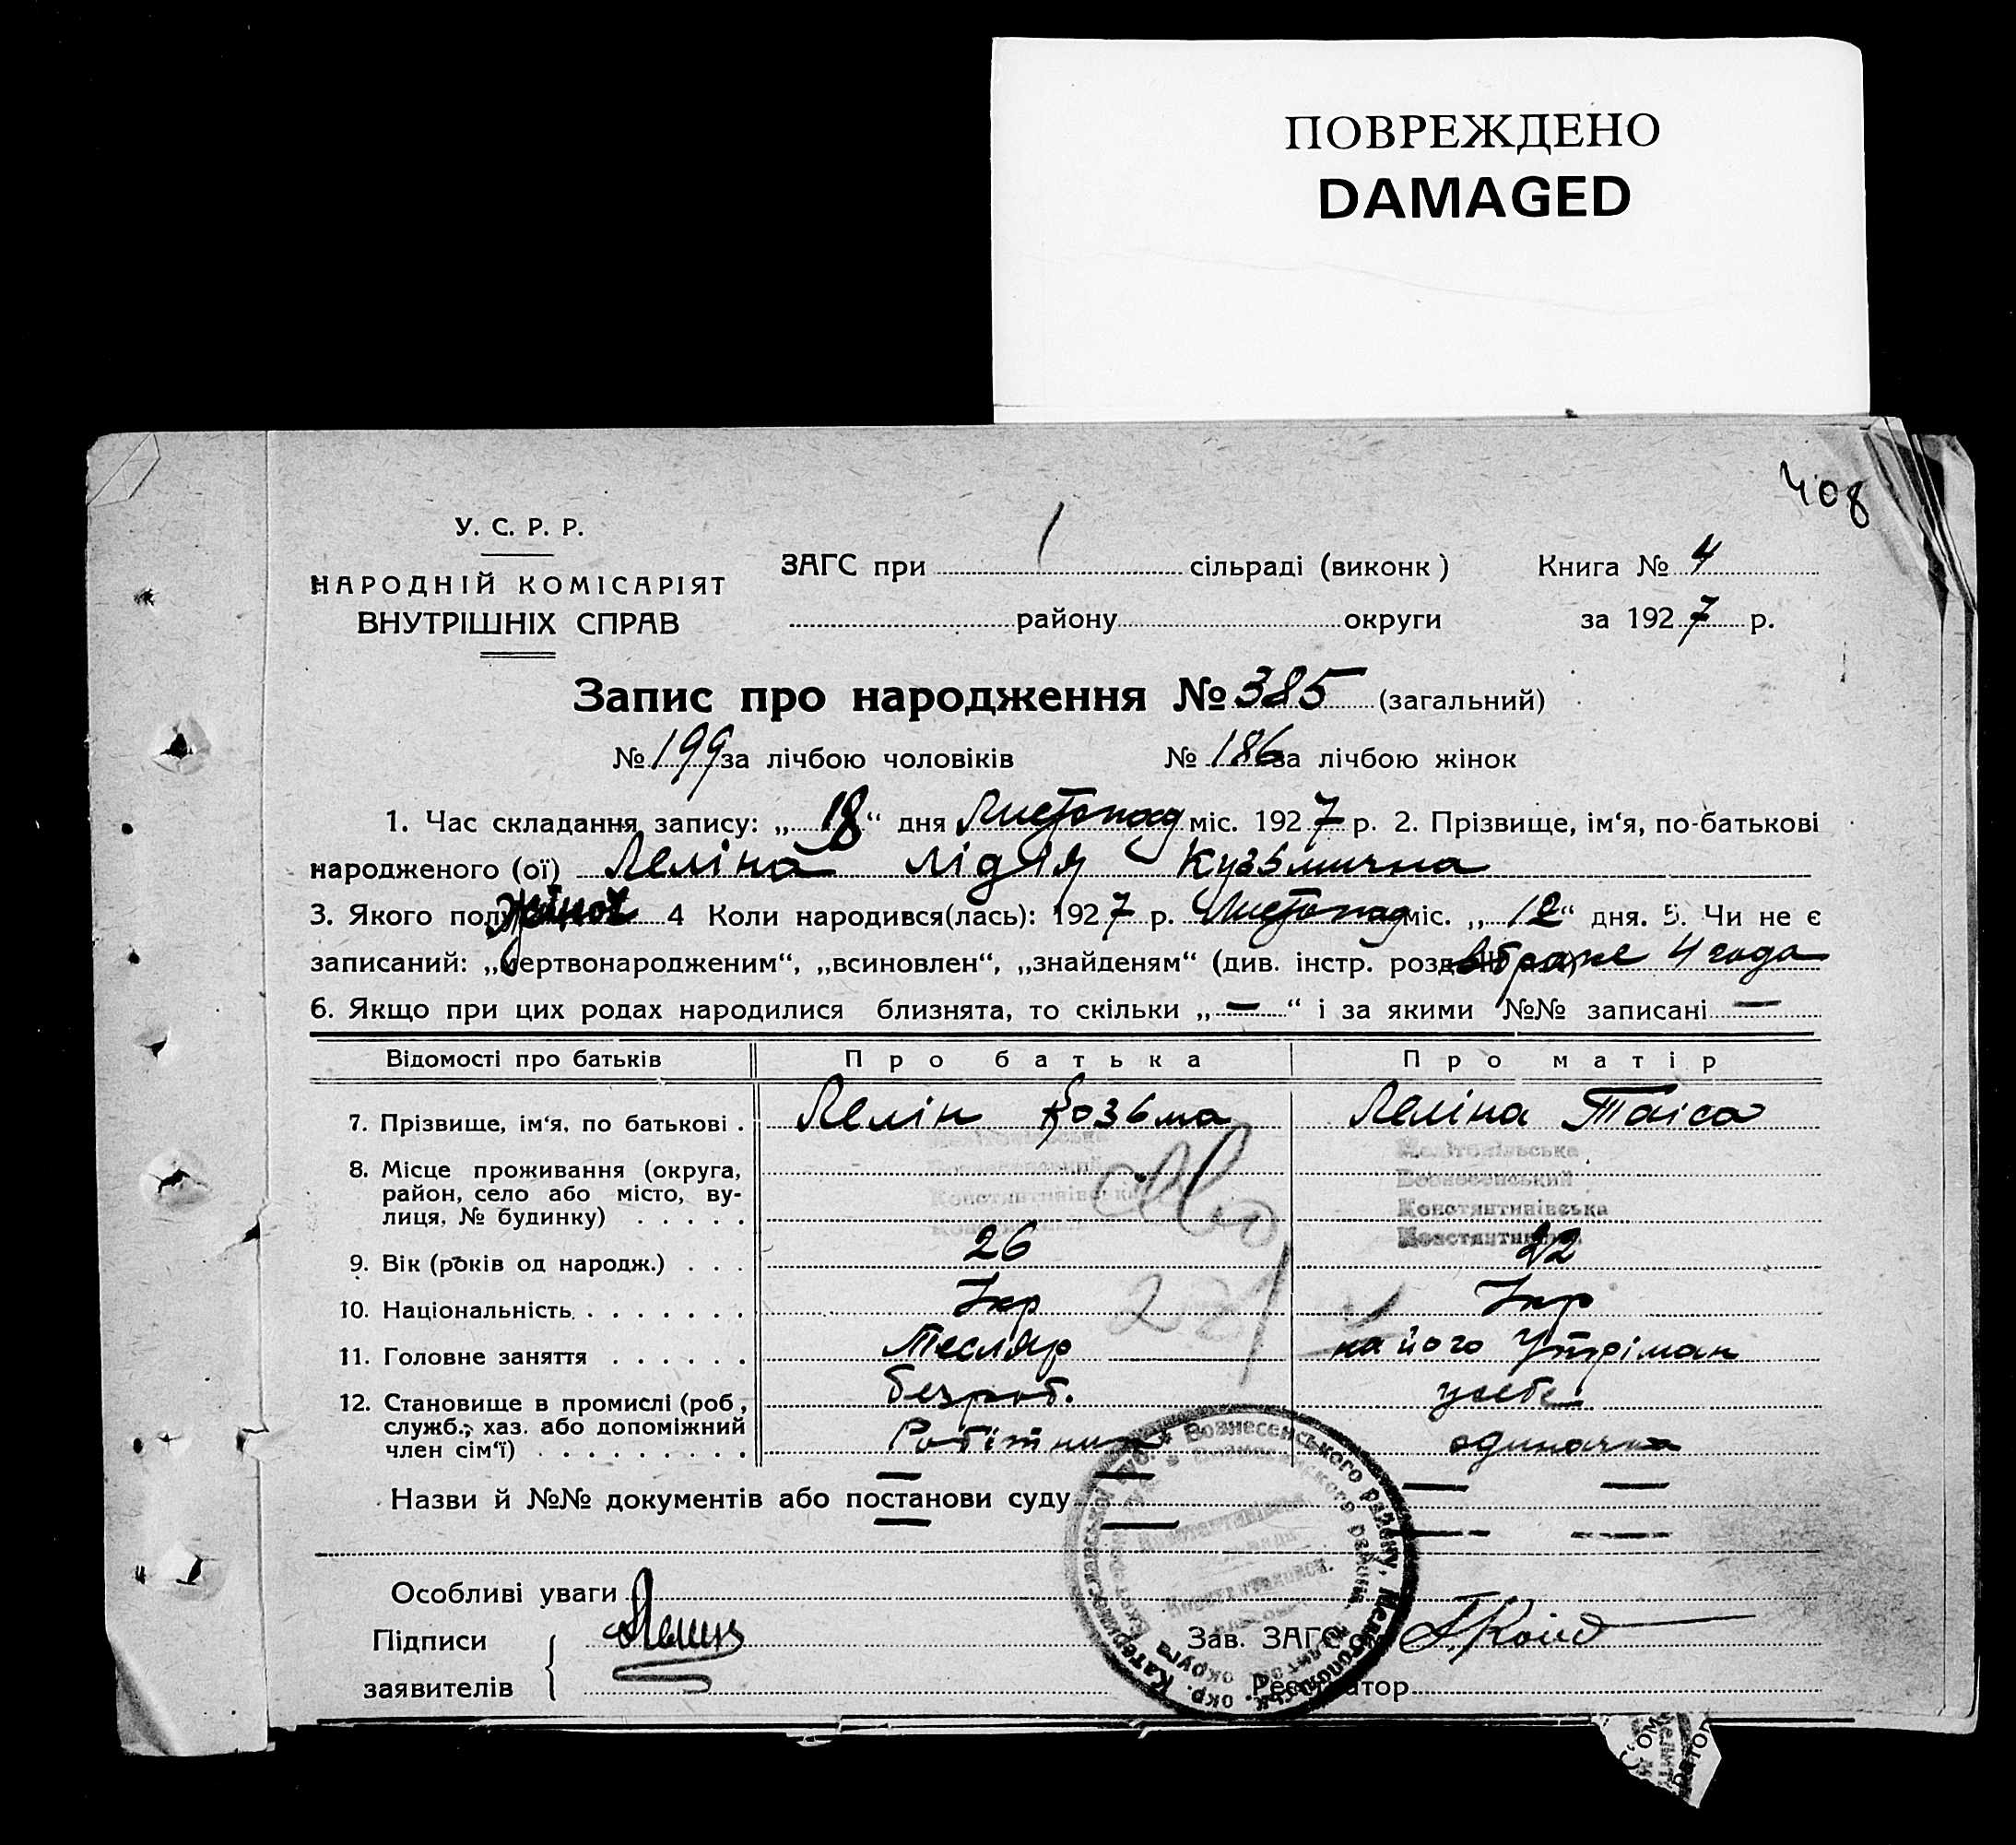 ПОВРЕЖДЕНО
DAMAGED
408
У. С. Р. Р.
НАРОДНІЙ КОМІСАРІЯТ
ВНУТРІШНІХ СПРАВ
ЗАГС при 1 сільраді (виконк) Книга № 4
району округи за 1927 р.
Запис про народження № 385 (загальний)
№ 199 за лічбою чоловіків № 186 за лічбою жінок
1. Час складання запису: „18“ дня Листопад міс. 1927 р. 2. Прізвище, ім‘я, по-батькові
народженого (ої) Леліна Лідія Кузьмична
3. Якого полу жіноч 4 Коли народився(лась): 1927 р. Листопад міс. „12“ дня. 5. Чи не є
записаний: „мертвонародженим“, „всиновлен“, „знайденям“ (див. інстр. розд. в браке 4 года
6. Якщо при цих родах народилися близнята, то скільки „—“ і за якими №№ записані —
Відомості про батьків Про батька Про матір
7. Прізвище, ім‘я, по батькові . Лелін Козьма Леліна Таіса
8. Місце проживання (округа, район, село або місто, ву-
лиця, № будинку) . . . . .
Мелітопільська
Вознесенський
Константинівська
9. Вік (років од народж.) . . . 26 22
10. Національність . . . . . . . Укр Укр
11. Головне заняття . . . . . . Тесляр на його утріман
12. Становище в промислі (роб,
служб., хаз. або допоміжний
член сім‘ї) . . . . . . . . .
безроб.
Робітник одиначка
Назви й №№ документів або постанови суду
Особливі уваги
Підписи
заявителів
Лелин
Зав. ЗАГС
Реєстратор
Вознесенського району, Мелітопольськ. окр. Катеринославської губ.